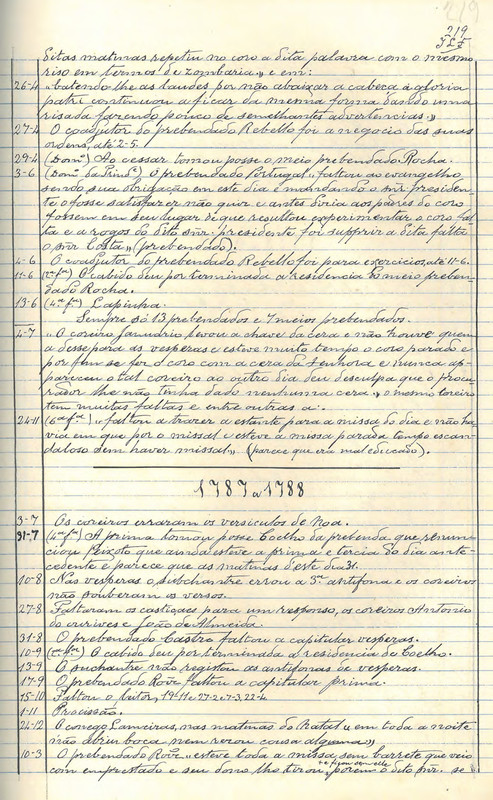 219
219
Ditas matinas repetiu no coro a dita palavra com o mesmo
riso em termos de zombaria." e em:
26-4 "batendo-lhe as laudes por não abaixar a cabeça á gloria
patri continuou a ficar da mesma forma dando uma
risada fazendo pouco de semelhantes advertencias."
27-4 O coadjutor do prebendado Rebello foi a negocio das suas
ordens, até 2-5.
29-4 (Domº) Ao cessar tomou posse o meio prebendado Rocha.
3-6 (Domº da Trindº) O prebendado Portugal "faltou ao evangelho
sendo sua obrigação em este dia e mandando o snr presiden-
te o fosse satisfazer não quis e antes diria aos padres do coro
fossem em seu lugar de que resultou experimentar o coro fal
ta e a rogos do dito snr. presidente foi supprir a dita falta
o snr Costa" (prebendado).
4-6 O coadjutor do prebendado Rebello foi para exercicios, até 11-6.
11-6 (2ª fª) O cabido deu por terminada a residencia do meio preben-
dado Rocha.
13-6 (4ª fª) Lapinha.
Sempre só 13 prebendados e 7 meios prebendados.
4-7 "O coreiro Januario levou a chave da cera e não houve quem
a desse para as vesperas e esteve muito tempo o coro parado e
por fim se foi o coro com a cera da Senhora e nunca ap-
pareceu o tal coreiro ao outro dia deu desculpa que o procu-
rador lhe não tinha dado nenhuma cera." O mesmo coreiro
tem muitas faltas e entre outras a:
24-11 (6ª fª) "faltou a trazer a estante para a missa do dia e não ha-
via em que por o missal e esteve a missa parada tempo escan-
daloso sem haver missal." (parece que era mal educado).
1787 a 1788
3-7 Os coreiros erraram os versiculos de Noa.
31-7 (4ª fª) A prima tomou posse Coelho da prebenda que renun-
ciou Peixoto que ainda esteve a prima e tercia do dia ante-
cedente e parece que as matinas d'este dia 31.
10-8 Nas vesperas o subchantre errou a 3ª antifona e os coreiros
não souberam os versos.
27-8 Faltaram os castiçaes para um responso, os coreiros Antonio
do ourives e João de Almeida.
31-8 O prebendado Castro faltou a capitular vesperas.
10-9 O cabido deu por terminada a residencia de Coelho.
13-9 O suchantre não registou as antifonas de vesperas.
17-9 O prebendado Roiz faltou a capitular prima.
15-10 Faltou o leitor, 19-11 e 27-2 e 7-3, 22-4.
1-11 Procissão.
24-12 O conego Lameiras, nas matinas do Natal "em toda a noite
não abriu boca nem rezou cousa alguma"
10-3 O prebendado Roiz "esteve toda a missa sem barrete que veio
com emprestado e seu dono lho tirou, porem o dito snr. se